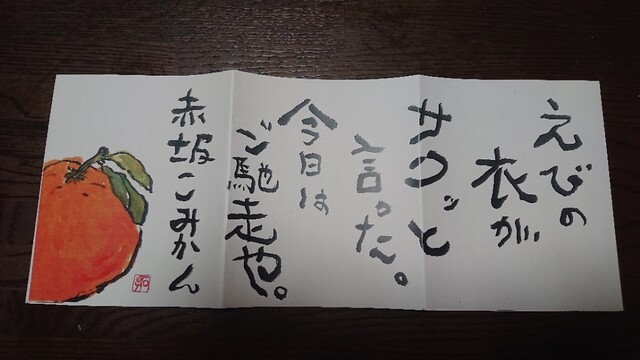 えびの
衣が、
サクッと
言った。
今日は
ご馳走や。
赤坂こみかん